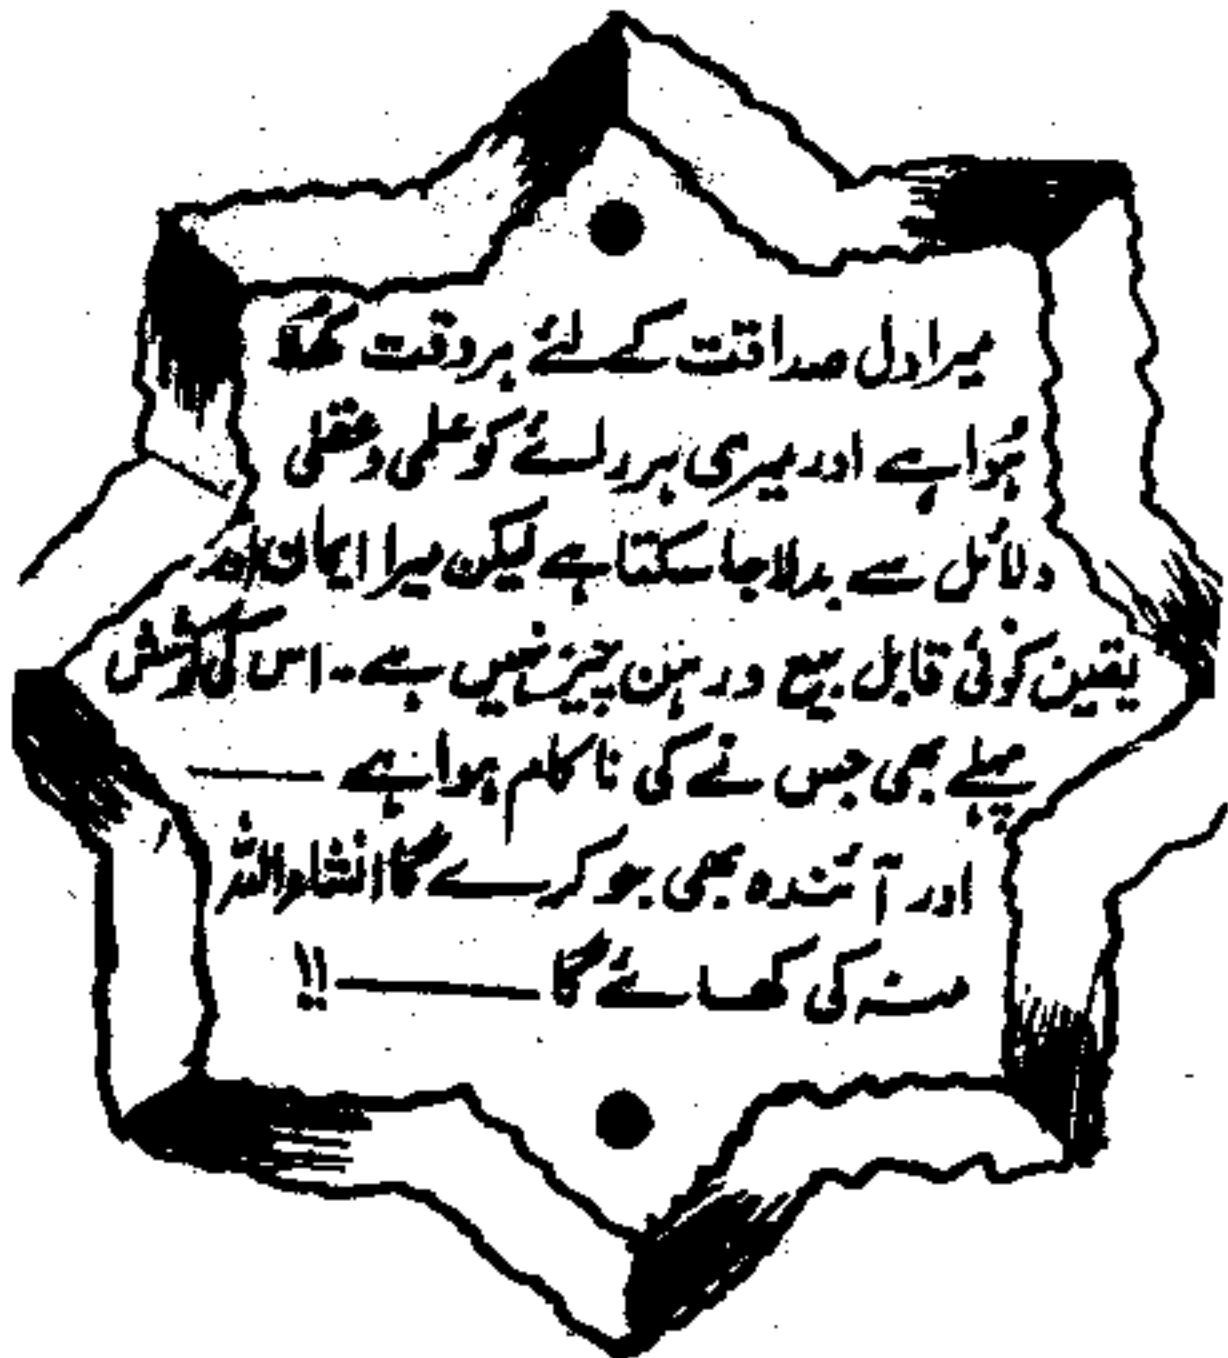 میرا دل صداقت کے لئے ہر وقت کھُلا
ہُوا ہے اور میری ہر رائے کو علمی و عقلی
دلائل سے بدلا جا سکتا ہے لیکن میرا ایمان اور
یقین کوئی قابل بیع و رہن چیز نہیں ہے۔ اس کی کوشش
پہلے بھی جس نے کی ناکام ہوا ہے ———
اور آئندہ بھی جو کرے گا انشاء اللہ
منہ کی کھائے گا ——— !!